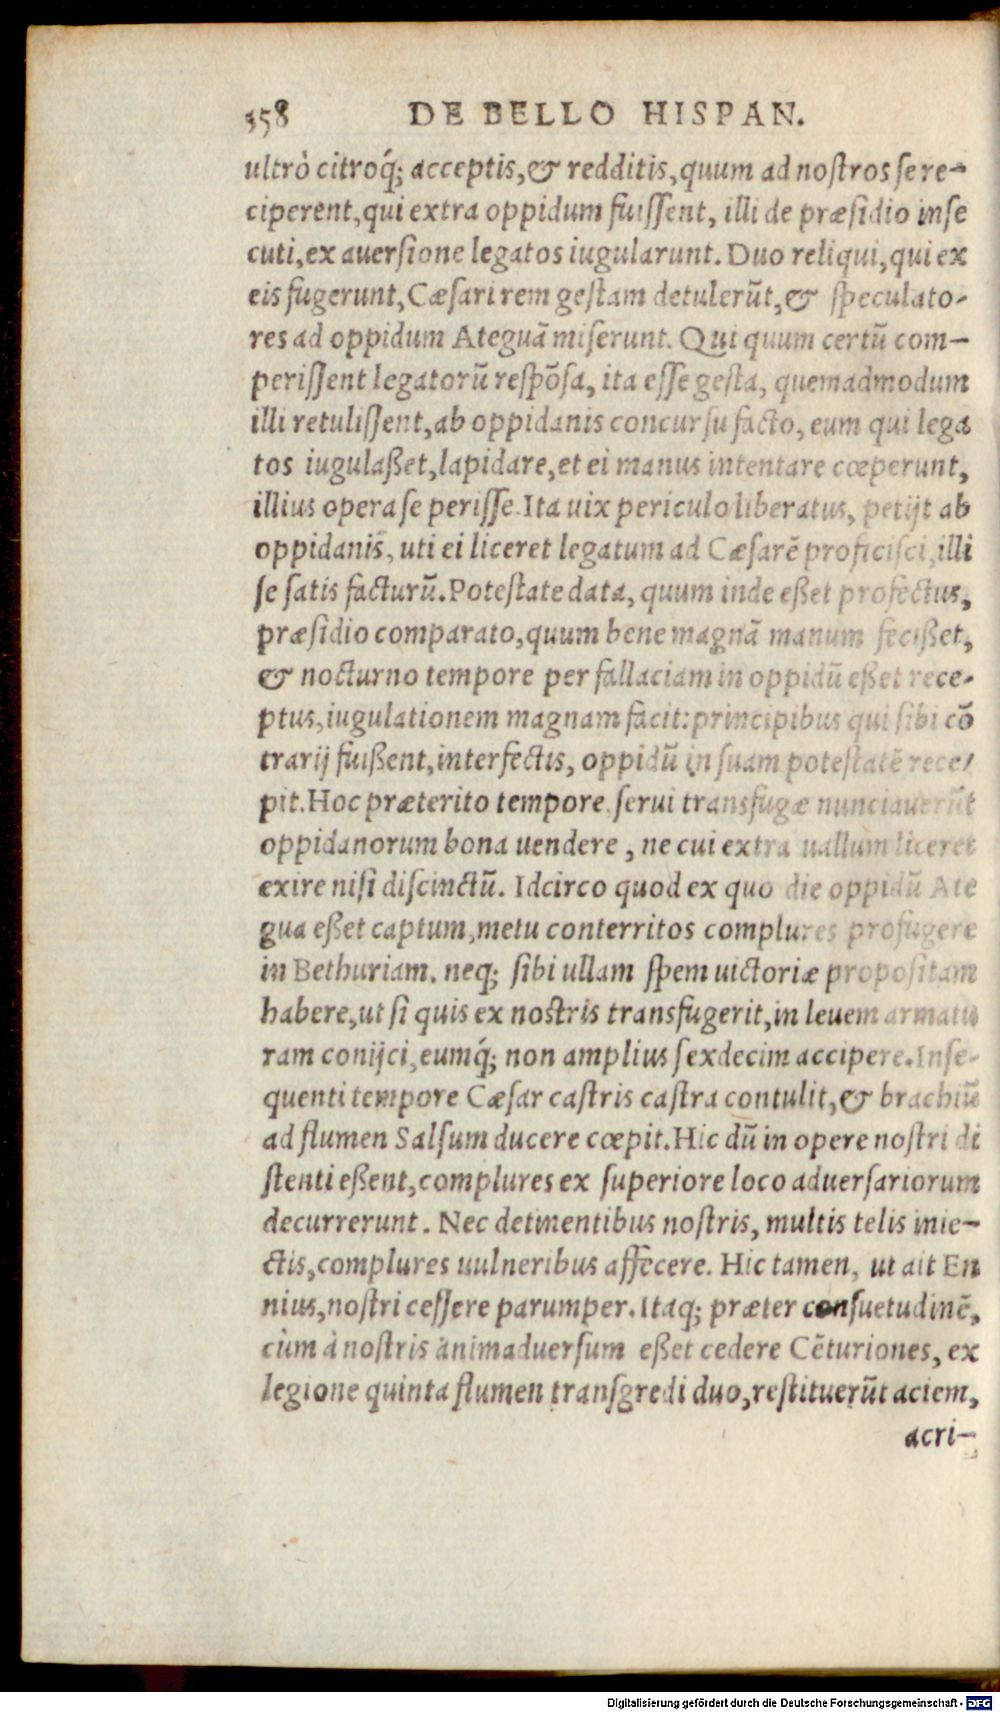 358 DE BELLO HISPAN.
ultrò citroq́; acceptis, & redditis, quum ad nostros se re-
ciperent, qui extra oppidum fuissent, illi de præsidio inse
cuti, ex auersione legatos iugularunt. Duo reliqui, qui ex
eis fugerunt, Cæsari rem gestam detulerũt, & speculato-
res ad oppidum Ateguã miserunt. Qui quum certũ com-
perissent legatorũ respõsa, ita esse gesta, quemadmodum
illi retulissent, ab oppidanis concursu facto, eum qui lega
tos iugulaßet, lapidare, et ei manus intentare cœperunt,
illius opera se perisse. Ita uix periculo liberatus, petijt ab
oppidanis, uti ei liceret legatum ad Cæsarẽ proficisci, illi
se satis facturũ. Potestate data, quum inde eßet profectus,
præsidio comparato, quum bene magnã manum fecißet,
& nocturno tempore per fallaciam in oppidũ eßet rece-
ptus, iugulationem magnam facit: principibus qui sibi cõ
trarij fuißent, interfectis, oppidũ in suam potestatẽ rece/
pit. Hoc præterito tempore serui transfugæ nunciauerũt
oppidanorum bona uendere, ne cui extra uallum liceret
exire nisi discinctũ. Idcirco quod ex quo die oppidũ Ate
gua eßet captum, metu conterritos complures profugere
in Bethuriam. neq; sibi ullam spem uictoriæ propositam
habere, ut si quis ex nostris transfugerit, in leuem armatu
ram conijci, eumq́; non amplius sexdecim accipere. Inse-
quenti tempore Cæsar castris castra contulit, & brachiũ
ad flumen Salsum ducere cœpit. Hic dũ in opere nostri di
stenti eßent, complures ex superiore loco aduersariorum
decurrerunt. Nec detinentibus nostris, multis telis inie-
ctis, complures uulneribus affecere. Hic tamen, ut ait En
nius, nostri cessere parumper. Itaq; præter consuetudinẽ,
cùm à nostris animaduersum eßet cedere Cẽturiones, ex
legione quinta flumen transgredi duo, restituerũt aciem,
acri-
Digitalisierung gefördert durch die Deutsche Forschungsgemeinschaft - DFG